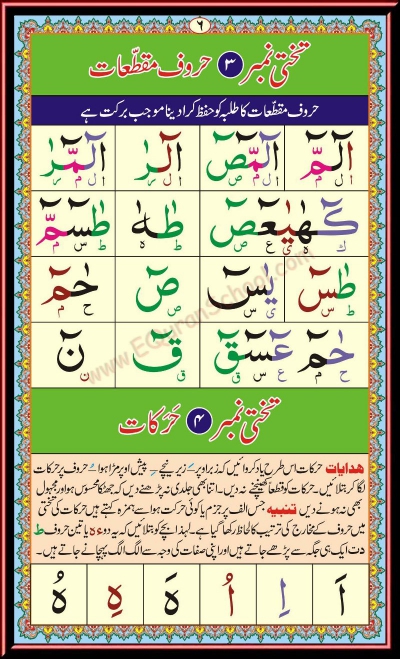 ۶
تختی نمبر ۳ حروف مقطّعات
حروف مقطّعات کا طلبہ کو حفظ کرا دینا موجب برکت ہے
الٓمّٓ الٓمّٓصٓ الٓرٰ الٓمّٓرٰ
ا ل م ا ل م ص ا ل ر ا ل م ر
كٓهٰيٰعٓصٓ طٰهٰ طٰسٓمّٓ
ك ه ي ع ص ط ه ط س م
طٰسٓ يٰسٓ صٓ حٰمٓ
ط س ي س ص ح م
حٰمٓ عٓسٓقٓ قٓ نٓ
ح م ع س ق ق ن
www.EQuranSchool.com
تختی نمبر ۴ حَرَکات
ھدایات حرکات اس طرح یاد کروائیں کہ زبر اوپر زیر نیچے پیش اوپر مڑا ہوا حروف پر حرکات
لگا کر بتلائیں۔ حرکات کو قطعاً کھینچنے نہ دیں۔ اتنا بھی جلدی نہ پڑھنے دیں کہ جھٹکا محسوس ہو اور مجہول
بھی نہ ہونے دیں تنبیہ جس الف پر جزم یا کوئی حرکت ہو اسے ہمزہ کہتے ہیں حرکات کی تختی
میں حروف کے مخارج کی ترتیب کا لحاظ رکھا گیا ہے۔ لہذا بچے کو بتلائیں کہ یہ دو ء ہ یا تین حروف ط
د ت ایک ہی جگہ سے پڑھے جاتے ہیں اور اپنی صفات کی وجہ سے الگ الگ پہچانے جاتے ہیں۔
اَ اِ اُ هَ هِ هُ